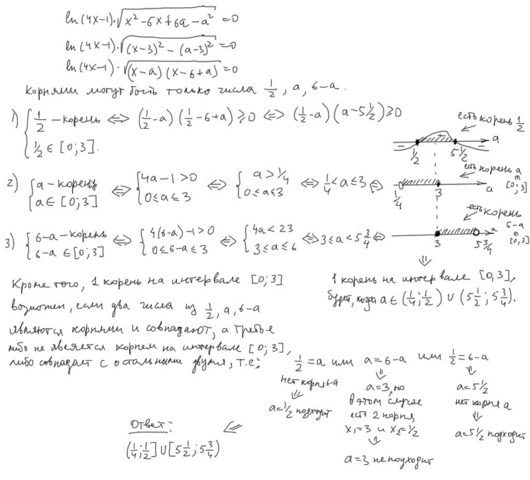 ln(4x-1)·√(x²-6x+6a-a²) =0
ln(4x-1)·√((x-3)²-(a-3)²) =0
ln(4x-1)·√((x-a)(x-6+a)) =0
Корнями могут быть только числа 1/2, a, 6-a.
1) { 1/2 - корень ⇔ (1/2-a)(1/2-6+a) ≥ 0 ⇔ (1/2-a)(a-5 1/2) ≥ 0
1/2 ∈ [0;3].
есть корень 1/2
1/2 5 1/2 a
2) { a - корень ⇔ { 4a-1>0 ⇔ { a>1/4 ⇔ 1/4<a≤3 ⇔
a ∈ [0;3] 0≤a≤3 0≤a≤3
есть корень a
[0;3]
1/4 3 a
3) { 6-a - корень ⇔ { 4(6-a)-1>0 ⇔ { 4a<23 ⇔ 3≤a<5 3/4 ⇔
6-a ∈ [0;3] 0≤6-a≤3 3≤a≤6
есть корень
6-a
3 5 3/4 a
Кроме того, 1 корень на интервале [0;3]
возможен, если два числа из 1/2, a, 6-a
являются корнями и совпадают, а третье
либо не является корнем на интервале [0;3],
либо совпадает с остальными двумя, т.е:
1 корень на интервале [0,3],
будет, когда a ∈ (1/4;1/2) ∪ (5 1/2; 5 3/4).
1/2 = a или a=6-a или 1/2=6-a
нет корня 6-a
a=1/2 подходит
a=3, но
в этом случае
есть 2 корня
x₁=3 и x₂=1/2
a=3 не подходит
a=5 1/2
нет корня a
a=5 1/2 подходит
Ответ:
(1/4;1/2] ∪ [5 1/2; 5 3/4)